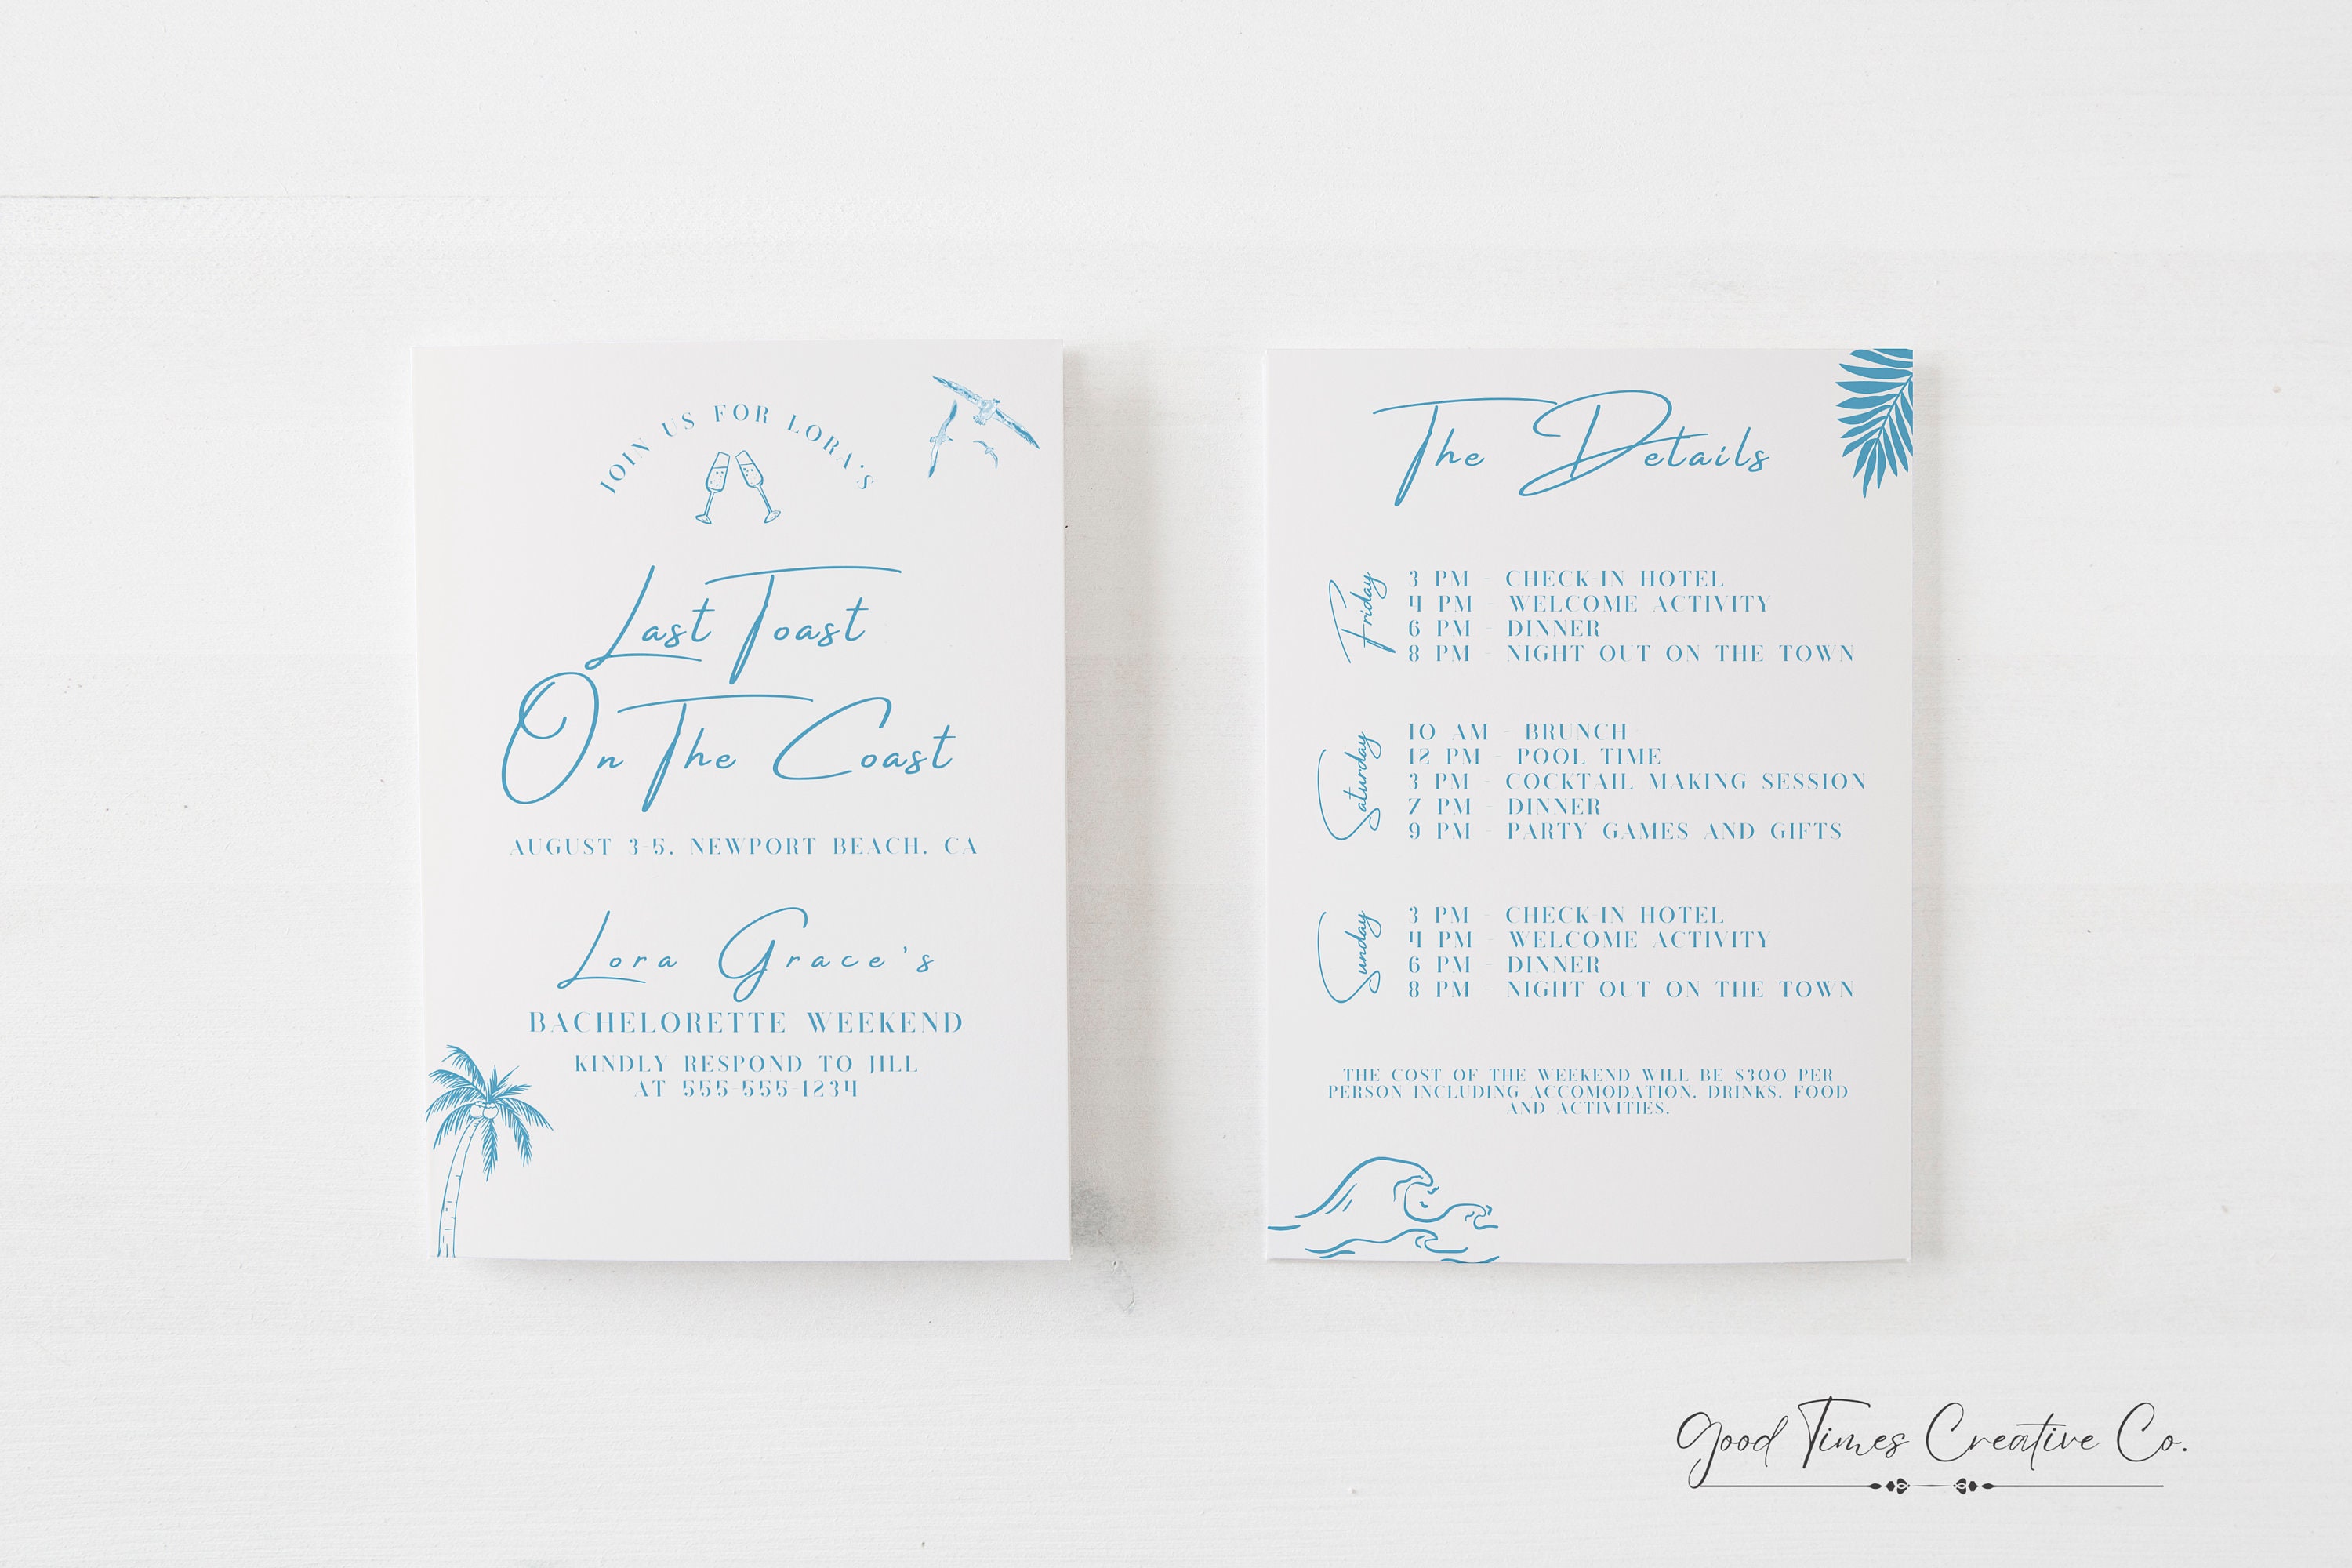 JOIN US FOR LORA'S
Last Toast
On The Coast
AUGUST 3-5, NEWPORT BEACH, CA
Lora Grace's
BACHELORETTE WEEKEND
KINDLY RESPOND TO JILL
AT 555-555-1234
The Details
Friday
3 PM - CHECK-IN HOTEL
4 PM - WELCOME ACTIVITY
6 PM - DINNER
8 PM - NIGHT OUT ON THE TOWN
Saturday
10 AM - BRUNCH
12 PM - POOL TIME
3 PM - COCKTAIL MAKING SESSION
7 PM - DINNER
9 PM - PARTY GAMES AND GIFTS
Sunday
3 PM - CHECK-IN HOTEL
4 PM - WELCOME ACTIVITY
6 PM - DINNER
8 PM - NIGHT OUT ON THE TOWN
THE COST OF THE WEEKEND WILL BE $300 PER
PERSON INCLUDING ACCOMODATION, DRINKS, FOOD
AND ACTIVITIES.
Good Times Creative Co.